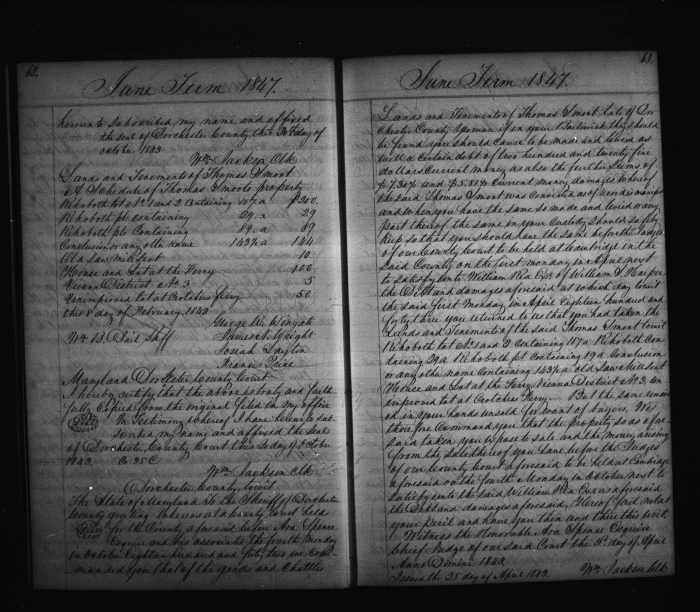 62.
June Term 1847.
hereunto Subscribed my name and affixed
the seal of Dorchester County this day of
octobr. 1843
Wm Jackson Clk
Land and Tenement of Thomas Smoot
A Schedule of Thomas Smoots property
Rehoboth lot No. 1 and 2 Containing 107 a $200.
Rehoboth pt containing 29 a 29
Rehoboth pts Containing 19 a 89
Conclusion or any othe Name 143¾ a 144
Old Saw mill seat 10
House and Lot at the Ferry 100
Vienna District No. 3 5
Unimproved lot at Crotchers ferry 50
this 8 day of February 1843
George W.
Wm B. Shff James A Wright
Josiah Layton
Francis Price
Maryland Dorchester County Court
I hereby certify that the above is truly and faith
fully Copied from the original filed in my office
In Testimony whereof I have hereunto Sub
scribed my name and affixed the Seal
of Dorchester County Court this day of October
1843.
Wm Jackson Clk
Dorchester County towit
The State of Maryland To the Sheriff of Dorchester
County greeting Whereas at a County Court held
for the County aforesaid before Ara Spence
Esquire and his associates the fourth Monday
in October Eighteen hundred and forty two we Com
manded you that of the goods and Chattles
63.
June Term 1847.
Lands and Tenement of Thomas Smoot late of Dor
chester County Yeoman if in your Bailiwick they should
be found you should cause to be made and levied as
well a certain debt of two hundred and twenty five
dollars Current money as also the further Sums of
and Current money damages whereof
the said Thomas Smoot was Convicted as of
and when you have the same so made and levied or any
part thereof the same in your Custody Should Safely
Keep so that you should have the same before the Judges
of our County Court to be held at Cambridge in the
said County on the first monday in April next
to satisfy unto William Rea of William
the Debt and damages aforesaid at which day towit
the said first Monday in April Eighteen hundred and
forty three you returned to us that you had taken the
Lands and Tenement of the said Thomas Smoot towit
Rehoboth lot No. 1 and 2 Containing 107 a Rehoboth Con
taining 29 a Rehoboth pt Containing 89 a Conclusion
or any othe name Containing 143¾ a old Saw Mill Seat
House and Lot at the Ferry Vienna District No. 3, un
improved lot at Crotchers Ferry. But the same remain
ed in your hands unsold for want of buyers, We
therefore Command you that the property so as afore
said taken you Expose to sale and the money arising
from the sale thereof you have before the Judges
of our County Court aforesaid to be held at Cambridge
aforesaid on the fourth Monday in October next to
Satisfy unto the said William Rea as aforesaid
the Debt and damages aforesaid, Hereof fail not at
your Peril and have you then and there this writ
Witness the Honorable Ara Spence Esquire
chief Judge of our said Court the 3d day of April
Anno Domini 1843.
Issued the 25 day of April 1843. Wm Jackson Clk